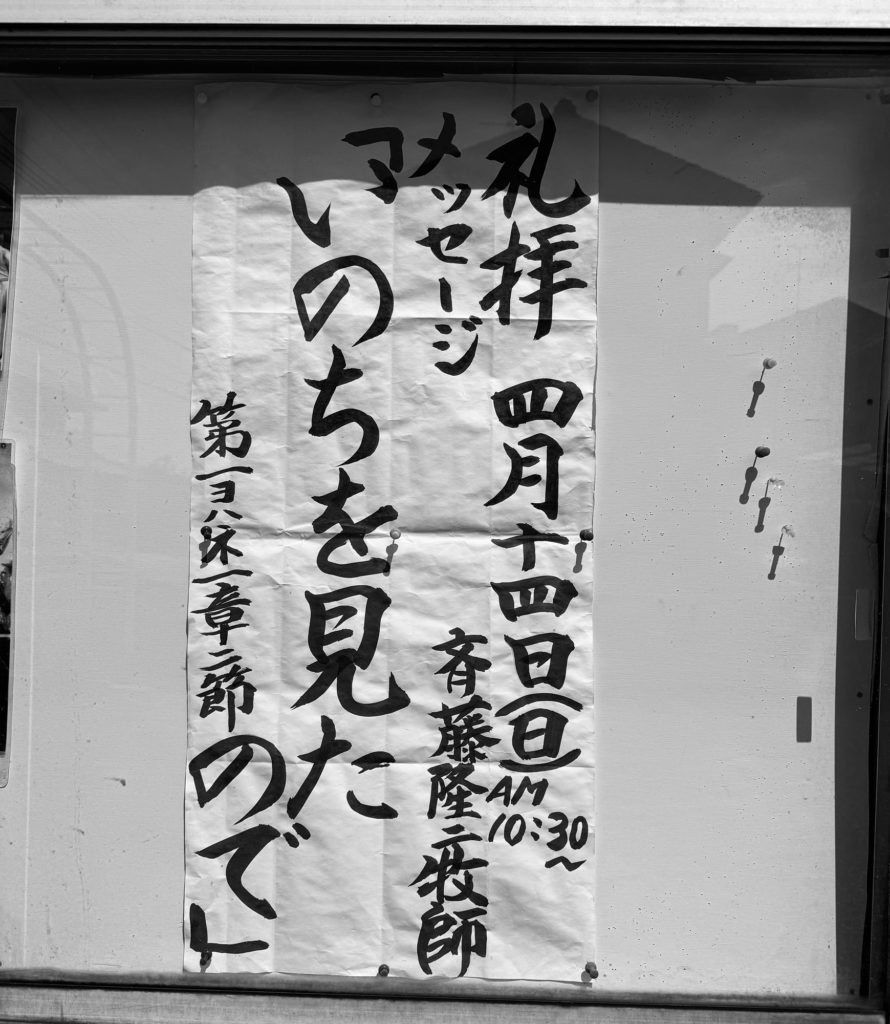 礼拝 四月十四日(日)
AM
10:30
~
メッセージ 斉藤隆二牧師
「いのちを見た
ので」
第一ヨハネ一章二節